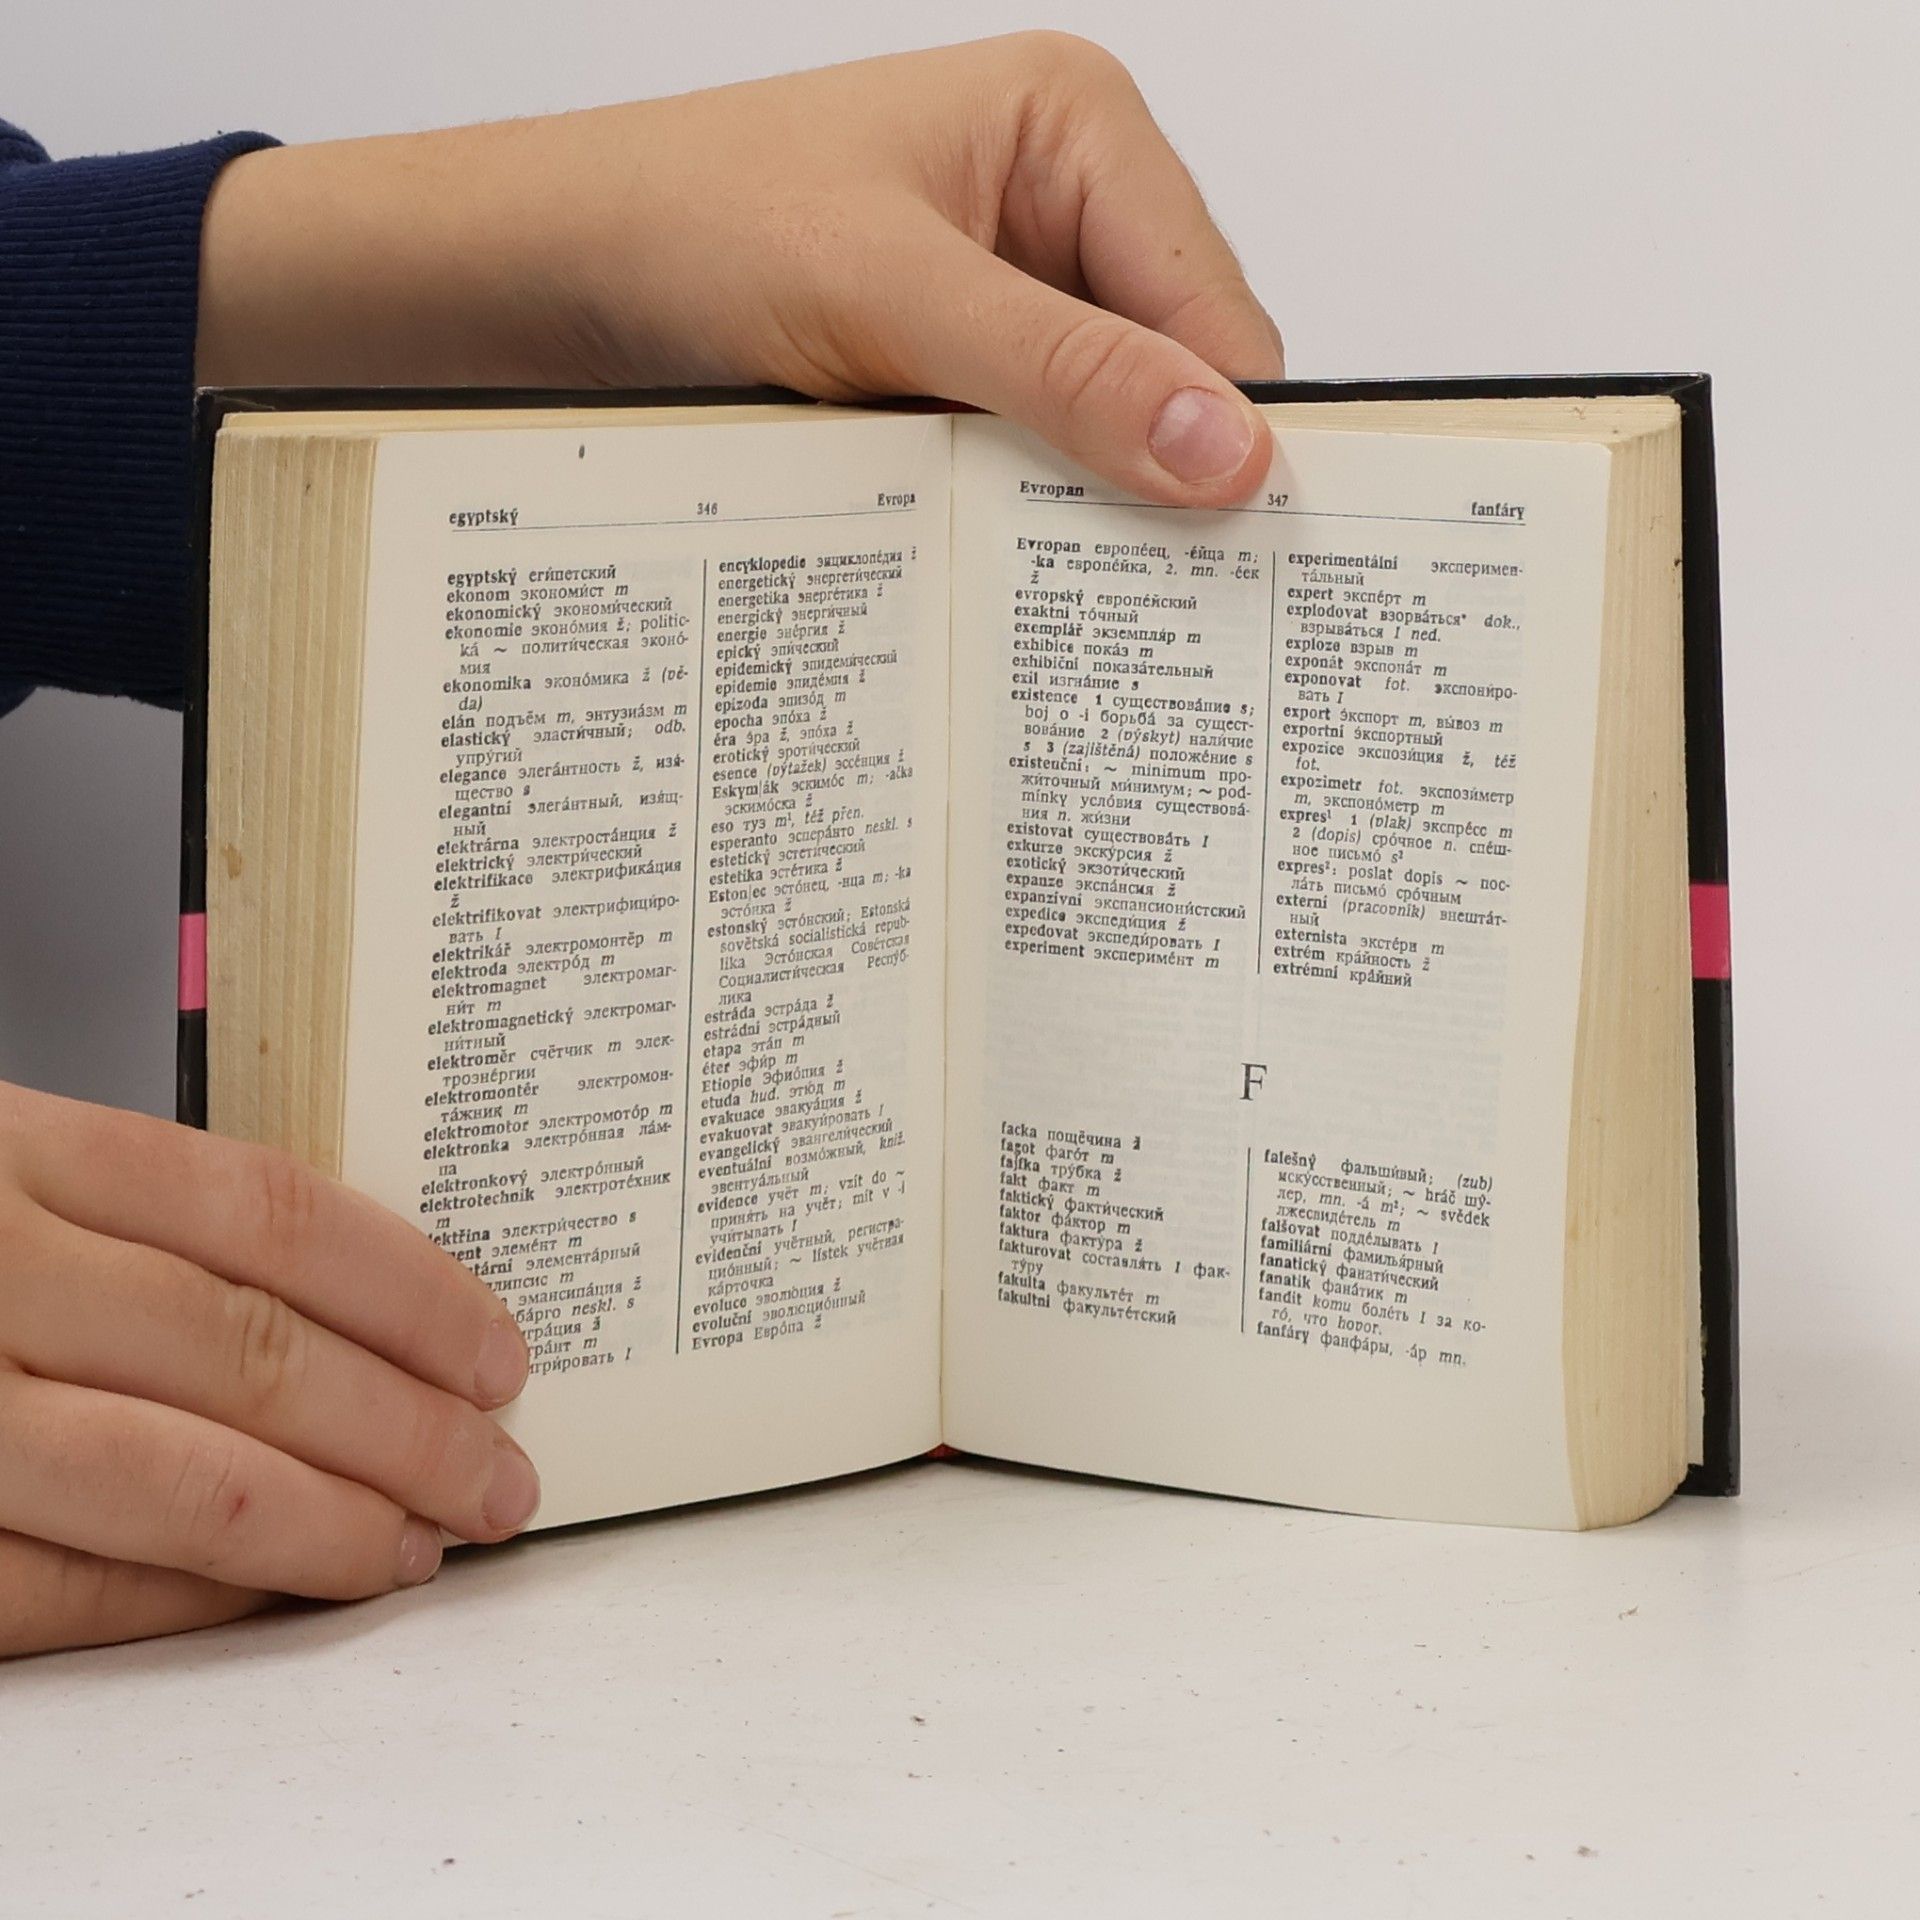 egyptský 346 Evropa
egyptský еги́петский
ekonom экономи́ст m
ekonomický экономи́ческий
ekonomie эконо́мия ž; politic-
ká ~ полити́ческая эконо́-
мия
ekonomika эконо́мика ž (vě-
da)
elán подъём m, энтузиа́зм m
elastický эласти́чный; odb.
упру́гий
elegance элега́нтность ž, изя́-
щество s
elegantní элега́нтный, изя́щ-
ный
elektrárna электроста́нция ž
elektrický электри́ческий
elektrifikace электрифика́ция
ž
elektrifikovat электрифици́ро-
вать I
elektrikář электромонтёр m
elektroda электро́д m
elektromagnet электромаг-
ни́т m
elektromagnetický электромаг-
ни́тный
elektroměr счётчик m элек-
троэне́ргии
elektromontér электромон-
та́жник m
elektromotor электромото́р m
elektronka электро́нная ла́м-
па
elektronkový электро́нный
elektrotechnik электроте́хник
m
ektřina электри́чество s
ment элеме́нт m
tární элемента́рный
липсис m
эмансипа́ция ž
ба́рго neskl. s
гра́ция ž
гра́нт m
игри́ровать I
encyklopedie энциклопе́дия ž
energetický энергети́ческий
energetika энерге́тика ž
energický энерги́чный
energie эне́ргия ž
epický эпи́ческий
epidemický эпидеми́ческий
epidemie эпиде́мия ž
epizoda эпизо́д m
epocha эпо́ха ž
éra э́ра ž, эпо́ха ž
erotický эроти́ческий
esence (výtažek) эссе́нция ž
Eskym|ák эскимо́с m; -ačka
эскимо́ска ž
eso туз m¹, též přen.
esperanto эспера́нто neskl. s
estetický эстети́ческий
estetika эсте́тика ž
Eston|ec эсто́нец, -нца m; -ka
эсто́нка ž
estonský эсто́нский; Estonská
sovětská socialistická repub-
lika Эсто́нская Сове́тская
Социалисти́ческая Респу́б-
лика
estráda эстра́да ž
estrádní эстра́дный
etapa эта́п m
éter эфи́р m
Etiopie Эфио́пия ž
etuda hud. этю́д m
evakuace эвакуа́ция ž
evakuovat эвакуи́ровать I
evangelický эвангели́ческий
eventuální возмо́жный, kniž.
эвентуа́льный
evidence учёт m; vzít do ~
приня́ть на учёт; mít v -i
учи́тывать I
evidenční учётный, регистра-
цио́нный; ~ lístek учётная
ка́рточка
evoluce эволю́ция ž
evoluční эволюцио́нный
Evropa Евро́па ž
Evropan 347 fanfáry
Evropan европе́ец, -е́йца m;
-ka европе́йка, 2. mn. -е́ек
ž
evropský европе́йский
exaktní то́чный
exemplář экземпля́р m
exhibice пока́з m
exhibiční показа́тельный
exil изгна́ние s
existence 1 существова́ние s;
boj o -i борьба́ за сущест-
вова́ние 2 (výskyt) нали́чие
s 3 (zajištěná) положе́ние s
existenční: ~ minimum про-
жи́точный ми́нимум; ~ pod-
mínky усло́вия существова́-
ния n. жи́зни
existovat существова́ть I
exkurze экску́рсия ž
exotický экзоти́ческий
expanze экспа́нсия ž
expanzívní экспансиони́стский
expedice экспеди́ция ž
expedovat экспеди́ровать I
experiment экспериме́нт m
experimentální эксперимен-
та́льный
expert экспе́рт m
explodovat взорва́ться* dok.,
взрыва́ться I ned.
exploze взрыв m
exponát экспона́т m
exponovat fot. экспони́ро-
вать I
export э́кспорт m, вы́воз m
exportní э́кспортный
expozice экспози́ция ž, též
fot.
expozimetr fot. экспози́метр
m, экспоно́метр m
expres¹ 1 (vlak) экспре́сс m
2 (dopis) сро́чное n. спе́ш-
ное письмо́ s²
expres²: poslat dopis ~ пос-
ла́ть письмо́ сро́чным
externí (pracovník) внешта́т-
ный
externista эксте́рн m
extrém кра́йность ž
extrémní кра́йний
F
facka пощёчина ž
fagot фаго́т m
fajfka тру́бка ž
fakt факт m
faktický факти́ческий
faktor фа́ктор m
faktura факту́ра ž
fakturovat составля́ть I фак-
ту́ру
fakulta факульте́т m
fakultní факульте́тский
falešný фальши́вый; (zub)
иску́сственный; ~ hráč шу́-
лер, mn. -á m²; ~ svědek
лжесвиде́тель m
falšovat подде́лывать I
familiární фамилья́рный
fanatický фанати́ческий
fanatik фана́тик m
fandit komu боле́ть I за ко-
го́, что hovor.
fanfáry фанфа́ры, -а́р mn.